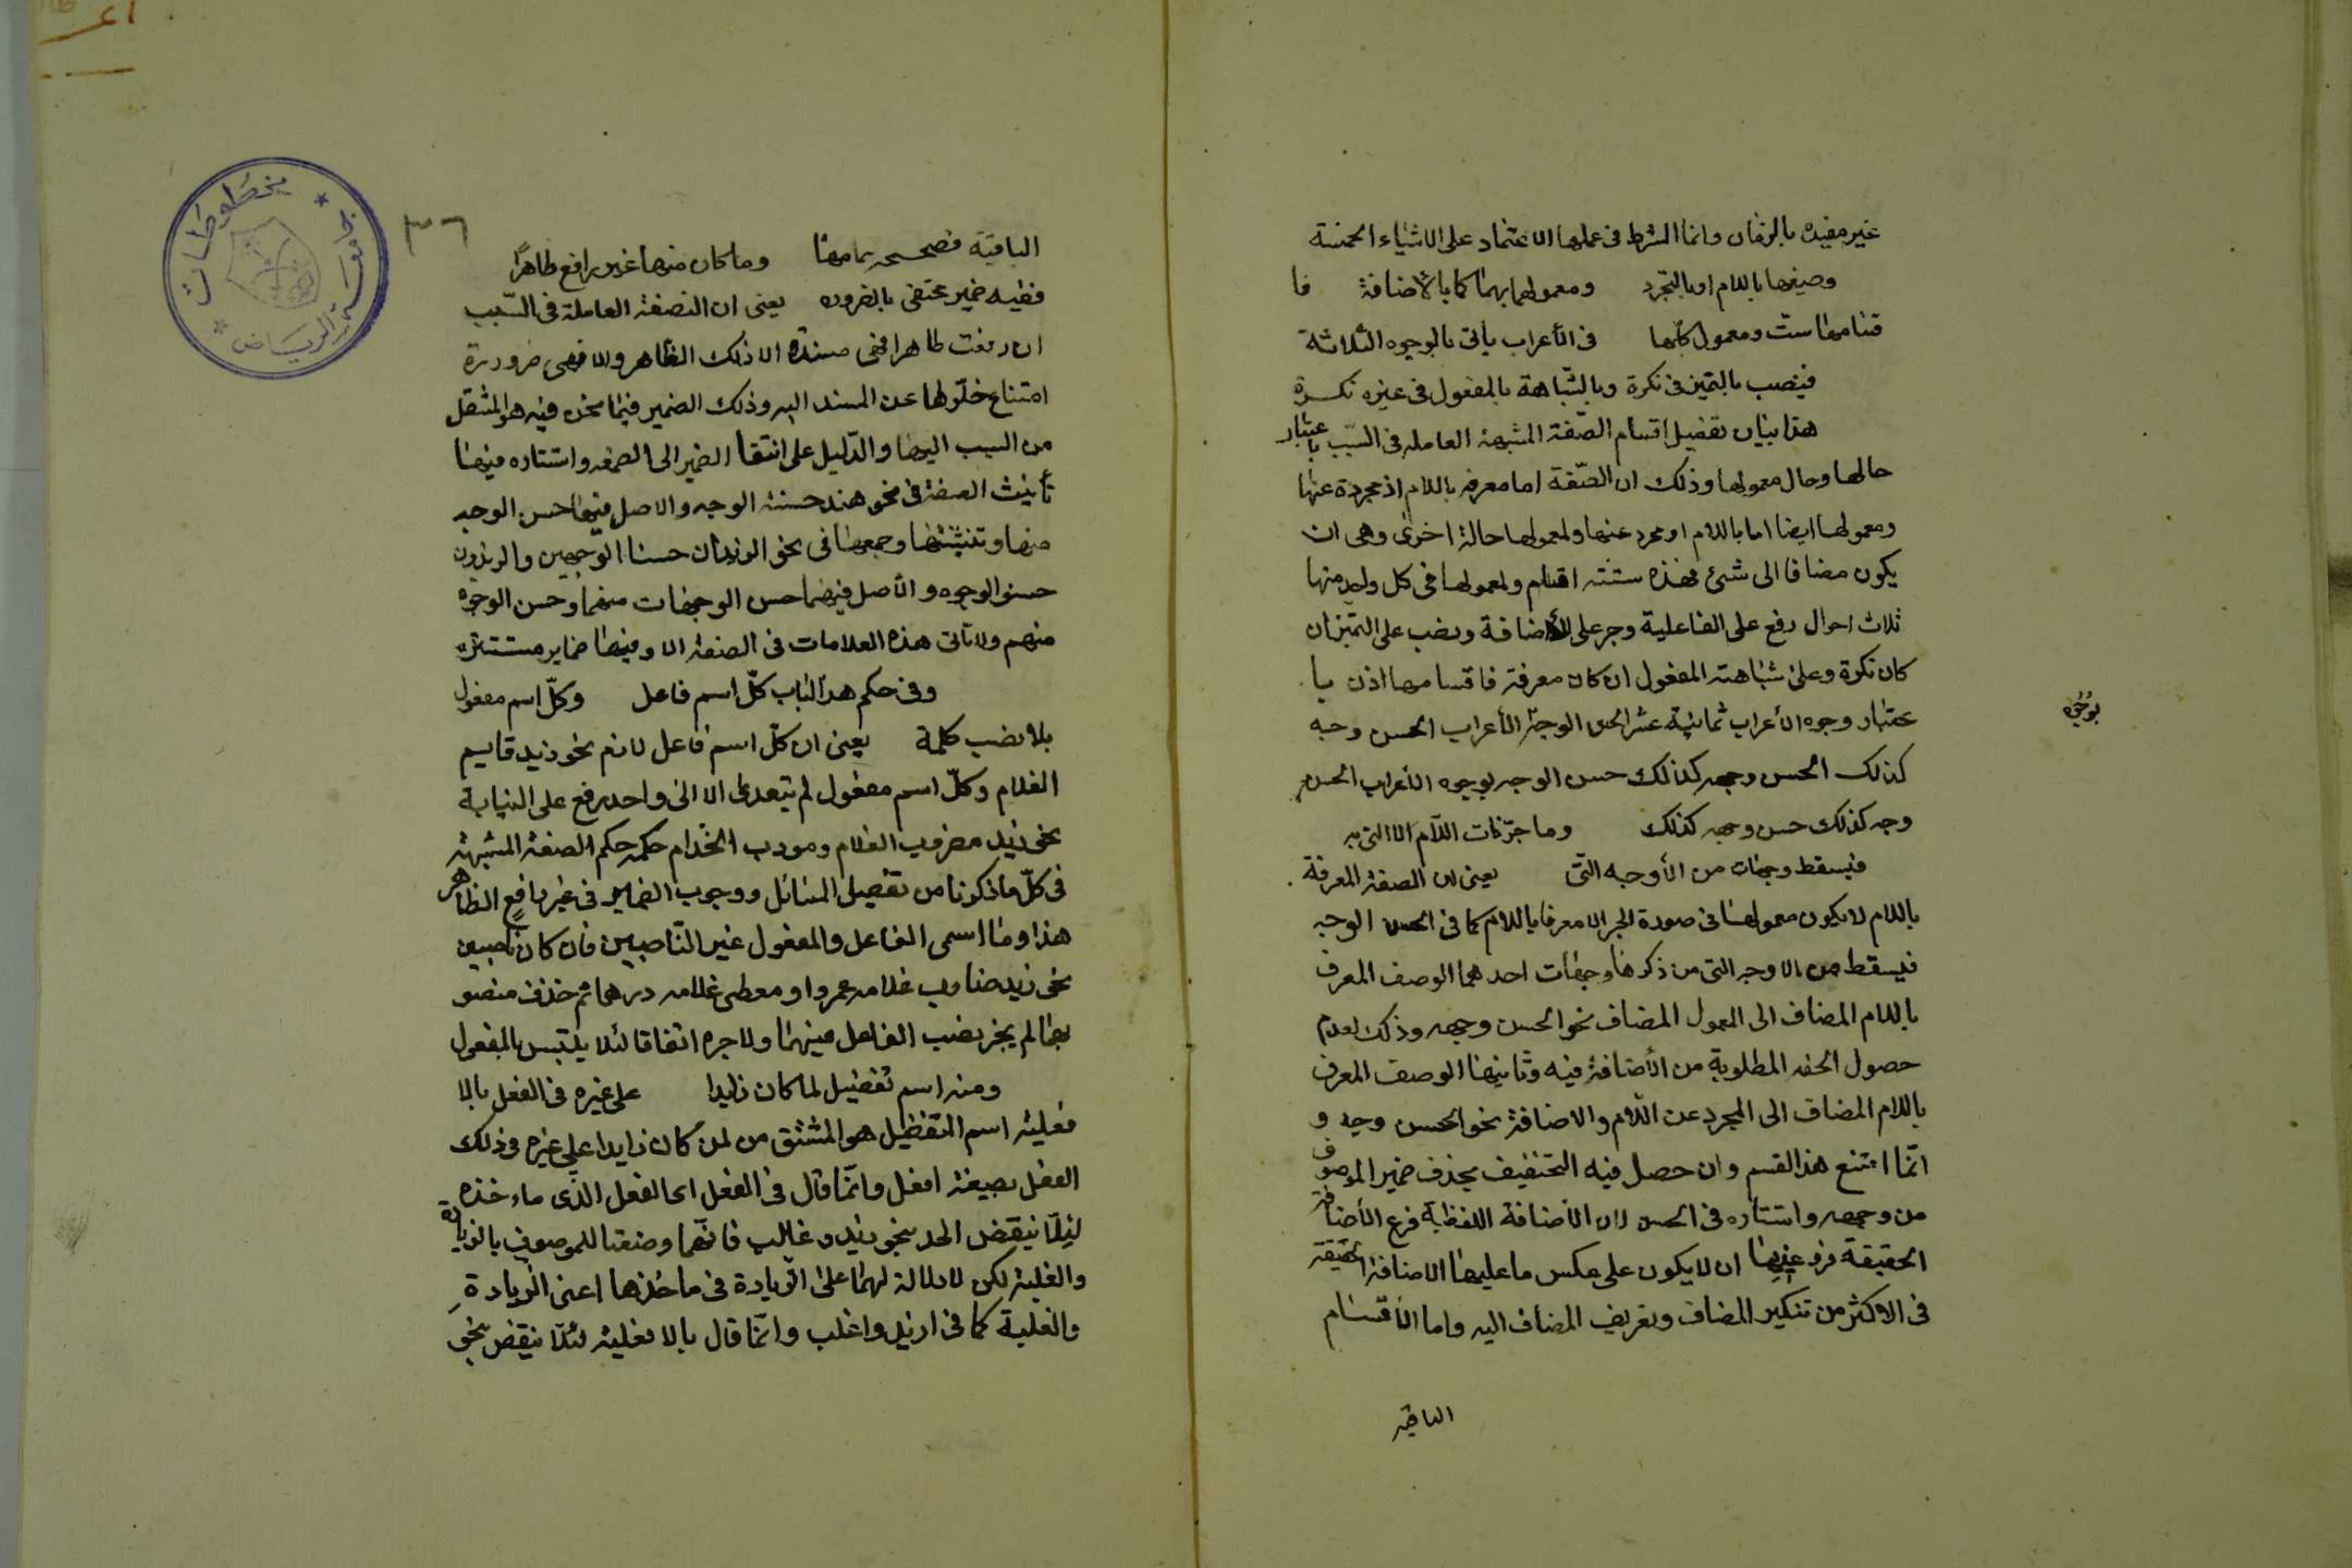 غير مقيده بالزمان وانما الشرط فى عملها الاعتماد على الاشياء الخمسة
وصيغها باللام او بالتجرد ومعمولها بهما كما بالاضافة فا
قسامها ست ومعمول كلها فى الأعراب يأتى بالوجوه الثلاثة
فينصب بالتميز فى نكرة وبالشباهة بالمفعول فى غيره نكرة
هذا بيان تفصيل اقسام الصّفة المشبهة العاملة فى السّبب باعتبار
حالها وحال معمولها وذلك ان الصّفة اما معرفه باللام او مجردة عنها
ومعمولها ايضا اما باللام او مجرد عنها ولمعمولها حالة اخرى وهى ان
يكون مضافا الى شئ فهذه ستته اقسام ولمعمولها فى كل واحد منها
ثلاث احوال رفع على الفاعلية وجر على الأضافة ونصب على التميز ان
كان نكرة وعلى شباهته المفعول ان كان معرفة فاقسامها اذن با
عتبار وجوه الأعراب ثمانية عشر الحسن الوجه الأعراب الحسن وجه
بوجوه
كذلك الحسن وجهه كذلك حسن الوجه بوجوه الأعراب الحسن
وجه كذلك حسن وجهه كذلك وما جرّ ذات اللّام الا التى به
فيسقط وجهان من الأوجه التّى يعنى ان الصفة المعرفة
باللام لا يكون معمولها فى صورة الجر الا معرفا باللام كما فى الحسن الوجه
فيسقط من الاوجه التى من ذكرها وجهان احدهما الوصف المعرف
باللام المضاف الى المعمول المضاف نحو الحسن وجهه وذلك لعدم
حصول الخفه المطلوبة من الأضافة فيه وثانيهما الوصف المعرف
باللام المضاف الى المجرد عن اللّام والاضافة نحو الحسن وجه و
انّما امتنع هذا القسم وان حصل فيه التخفيف بحذف ضمير الموصوف
من وجهه واستتاره فى الحسن لان الاضافة اللفظية فرع الأضافة
الحقيقة فروعيها ان لا يكون على عكس ما عليها الاضافة الحقيقة
فى الاكثر من تنكير المضاف وتعريف المضاف اليه واما الأقسام
الباقيه
٣٦
الباقية فصحيحه تمامها وما كان منها غير رافع ظاهرًا
ففيه ضمير مختفى بالضروره يعنى ان الصفة العاملة فى السّبب
ان رفعت ظاهرا فهى مسندة الا ذلك الظاهر والا فهى ضرورة
امتناع خلّوها عن المسند اليه وذلك الضمير فيما نحن فيه هو المنتقل
من السبب اليها والدّليل على انتقا الضمير الى الصفه واستتاره فيها
تأنيث الصفة فى نحو هند حسنة الوجه والاصل فيها حسن الوجه
منها وتثنيتها وجمعها فى نحو الزيدان حسنا الوجهين والزيدون
حسنو الوجوه والأصل فيهما حسن الوجهان منهما وحسن الوجوه
منهم ولا تأتى هذه العلامات فى الصفة الا وفيها ضماير مستتره
وفى حكم هذا الباب كلّ اسم فاعل وكلّ اسم مفعول
بلا نصب كلمة يعنى ان كلّ اسم فاعل لازم نحو زيد قايم
الغلام وكلّ اسم مفعول لم يتعدى الا الى واحد رفع على النيابة
نحو زيد مضروب الغلام ومودب الخدام حكمه حكم الصفة المشبهة
فى كلّ ما ذكرنا من تفصيل المسائل ووجوب الضمير فى غير رافع الظاهر
هذا وما اسمى الفاعل والمفعول غير النّاصبين فأن كان ناصبين
نحو زيد ضارب غلامه عمروا ومعطى غلامه درهما ثم حذف منصو
بهما لم يجز نصب الفاعل فيهما ولا جره اتفاقا لئلا يلتبس بالمفعول
ومنه اسم تفضيل لما كان زايدا على غيره فى الفعل بالا
فعلية اسم التفظيل هو المشتق من لمن كان زايدا على غيره فى ذلك
الفعل بصيغة افعل وانّما قال فى الفعل اى الفعل الذى ماءخذه
لئلّا ينقض الحد بنحو زيد وغالب فانّهما وضعتا للموصوف بالزيادة
والغلبة لكن لا دلالة لهما على الزّيادة فى ماخذها اعنى الزيادة
والغلبة كما فى ازيد واغلب وانّما قال بالا فعلية لئلّا ينقض بنحو
جامعة الرياض مخطوطات